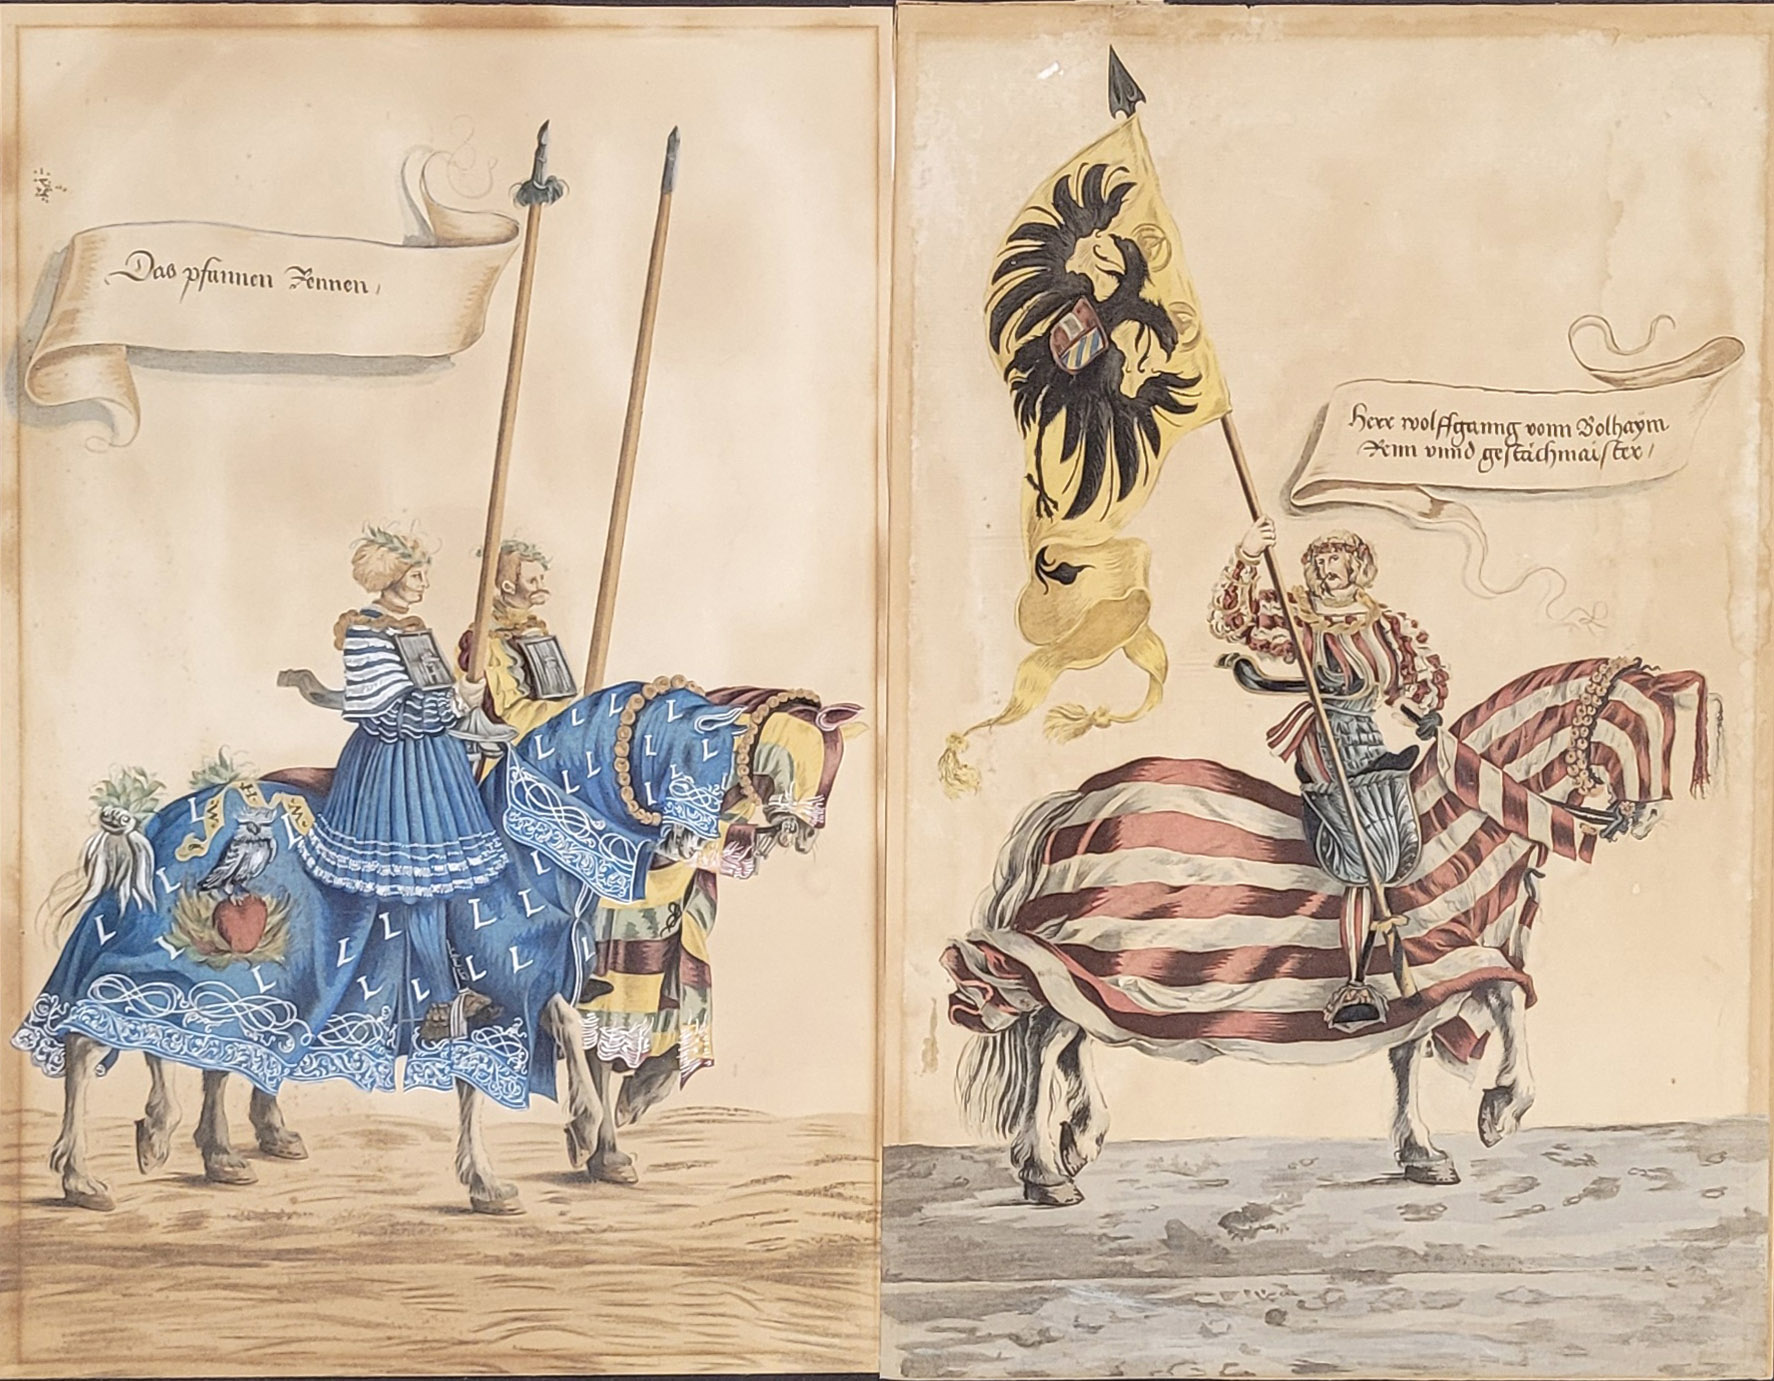 Das pfannen Rennen,
Herr wolffganng vonn Bolhaÿm
Renn vnnd gestächmaister,